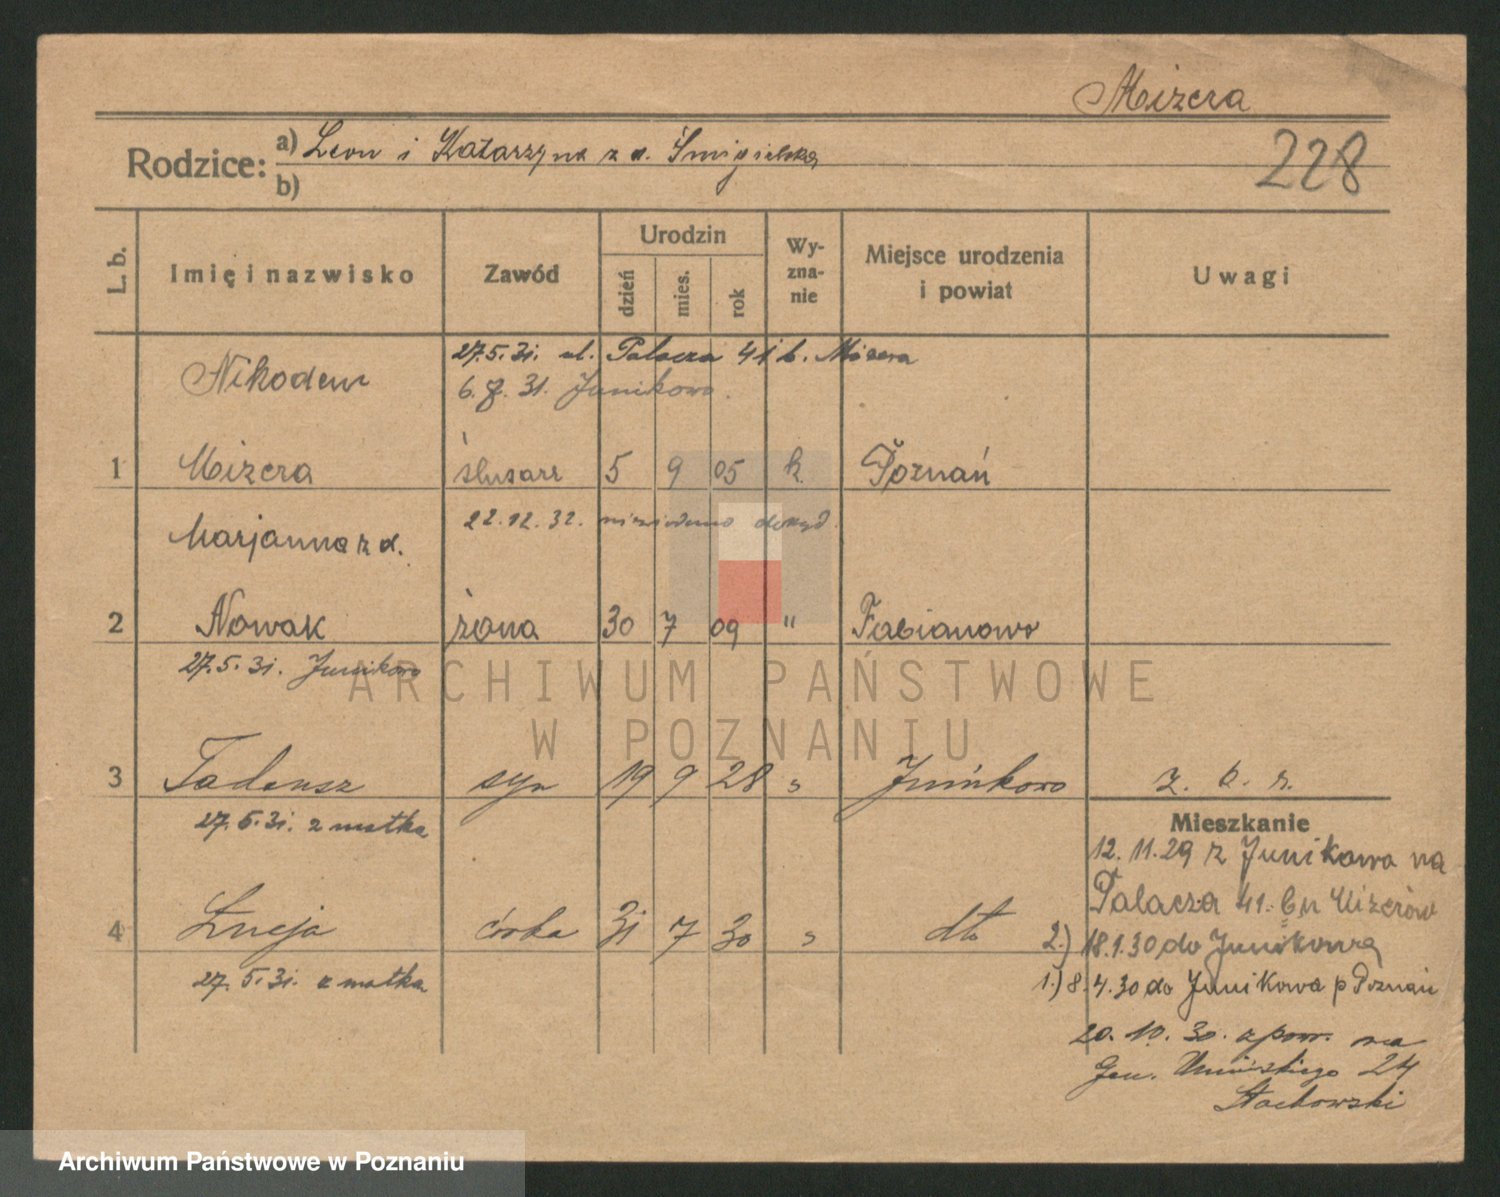 Miżera
Rodzice: a) Leon i Katarzyna z d. Śmigielska
228
b)
L. b.
Imię i nazwisko
Zawód
Urodzin
dzień
mies.
rok
Wy-
zna-
nie
Miejsce urodzenia
i powiat
Uwagi
27.5.31. ul. Palacza 41 b. Miżera
Nikodem
6. 8. 31. Junikowo.
1 Miżera ślusarz 5 9 05 k. Poznań
22.12.32. niewiadomo dokąd.
Marjanna z d.
2 Nowak żona 30 7 09 " Fabianowo
27.5.31. Junikowo
ARCHIWUM PAŃSTWOWE
W POZNANIU
3 Tadeusz syn 19 9 28 " Junikowo z. b. r.
27.5.31. z matką
Mieszkanie
12. 11. 29 z Junikowa na
Palacza 41. Miżerów
4 Łucja córka 31 7 30 " dto
2.) 18.1.30 do Junikowa
27.5.31. z matką
1.) 8.4.30 do Junikowa p Poznań
20. 10. 30. z pow. na
Gen. Umińskiego 24
Stachowski
Archiwum Państwowe w Poznaniu